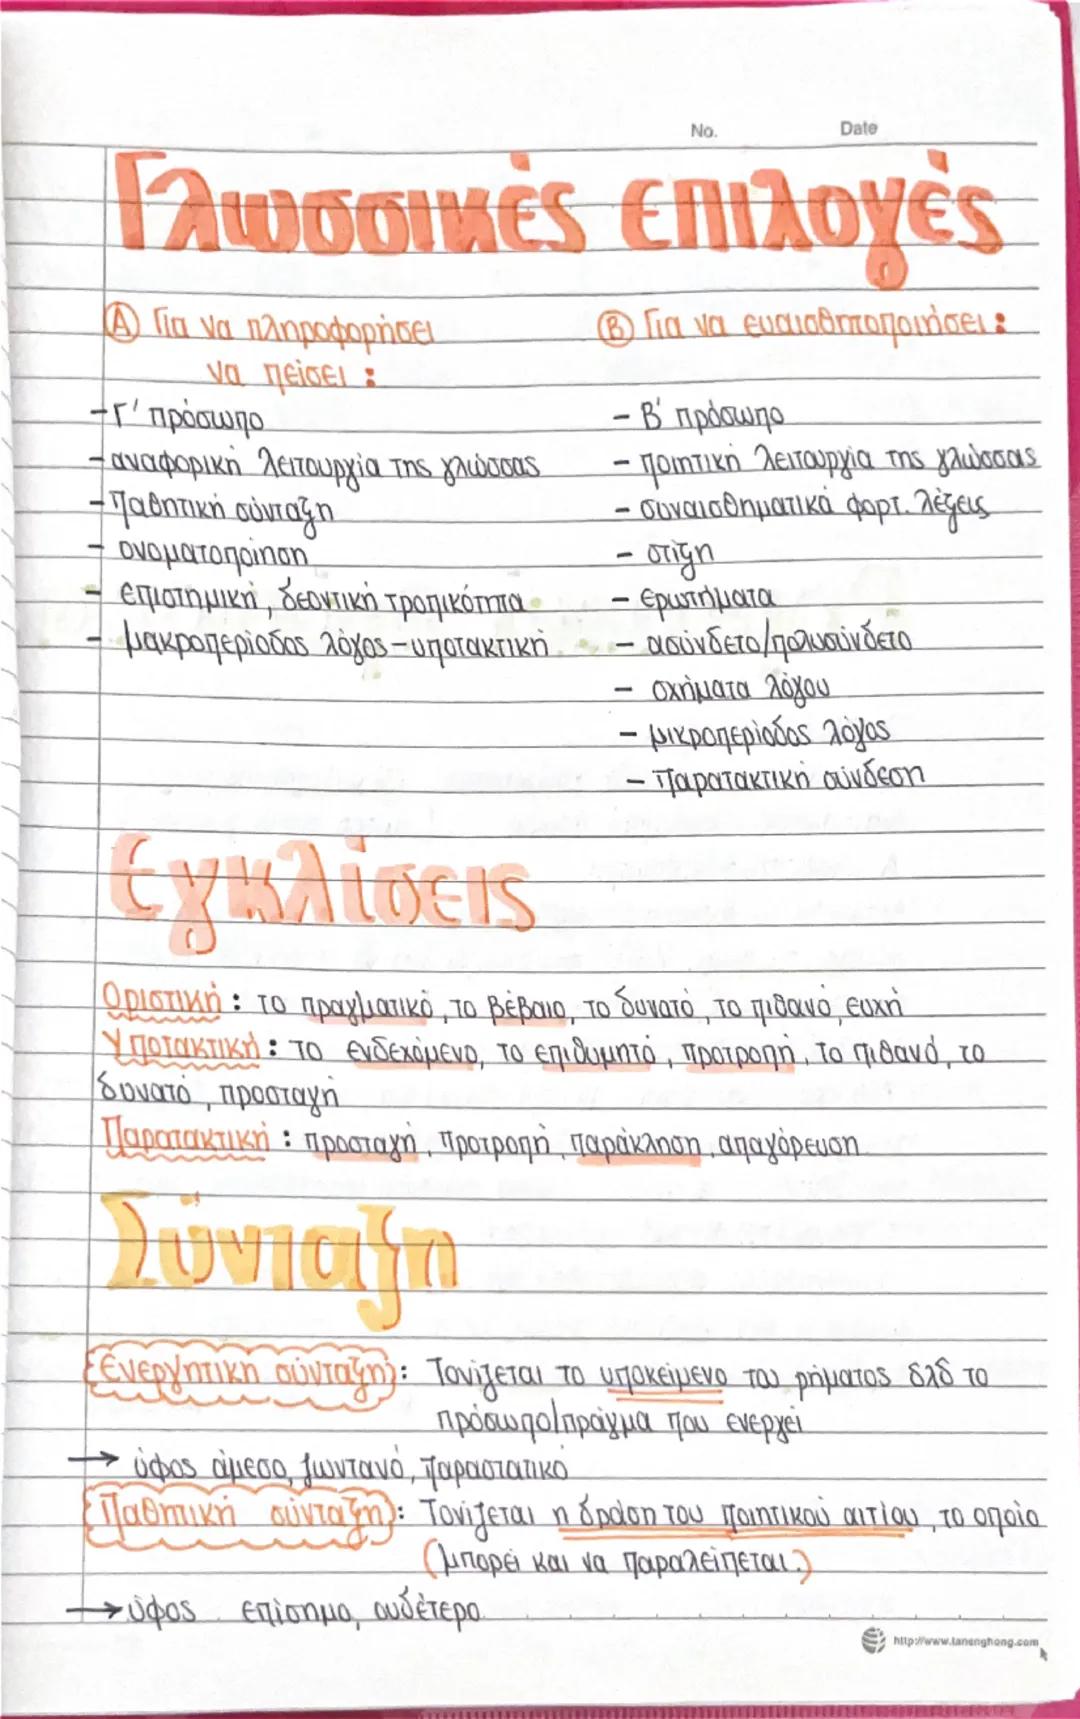 No. Date
Γλωσσικές επιλογές
Α Για να πληροφορήσει
να πείσει :
- Γ' πρόσωπο
- αναφορική λειτουργία της γλώσσας
- Παθητική σύνταξη
- ονοματοποίηση
- επιστημική, δεοντική τροπικότητα
- μακροπερίοδος λόγος - υποτακτική
Β Για να ευαισθητοποιήσει :
- Β' πρόσωπο
- ποιητική λειτουργία της γλώσσας
- συναισθηματικά φορτ. λέξεις
- στίξη
- ερωτήματα
- ασύνδετο/πολυσύνδετο
- σχήματα λόγου
- μικροπερίοδος λόγος
- Παρατακτική σύνδεση
Εγκλίσεις
Οριστική : το πραγματικό, το βέβαιο, το δυνατό, το πιθανό, ευχή
Υποτακτική : το ενδεχόμενο, το επιθυμητό, προτροπή, το πιθανό, το
δυνατό, προσταγή
Παρατακτική : προσταγή, προτροπή, παράκληση, απαγόρευση
Σύνταξη
Ενεργητική σύνταξη : Τονίζεται το υποκείμενο του ρήματος δλδ το
πρόσωπο/πράγμα που ενεργεί
→ ύφος άμεσο, ζωντανό, παραστατικό
Παθητική σύνταξη : Τονίζεται η δράση του ποιητικού αιτίου, το οποίο
(μπορεί και να παραλείπεται.)
→ ύφος επίσημο, ουδέτερο
http://www.lanenghong.com